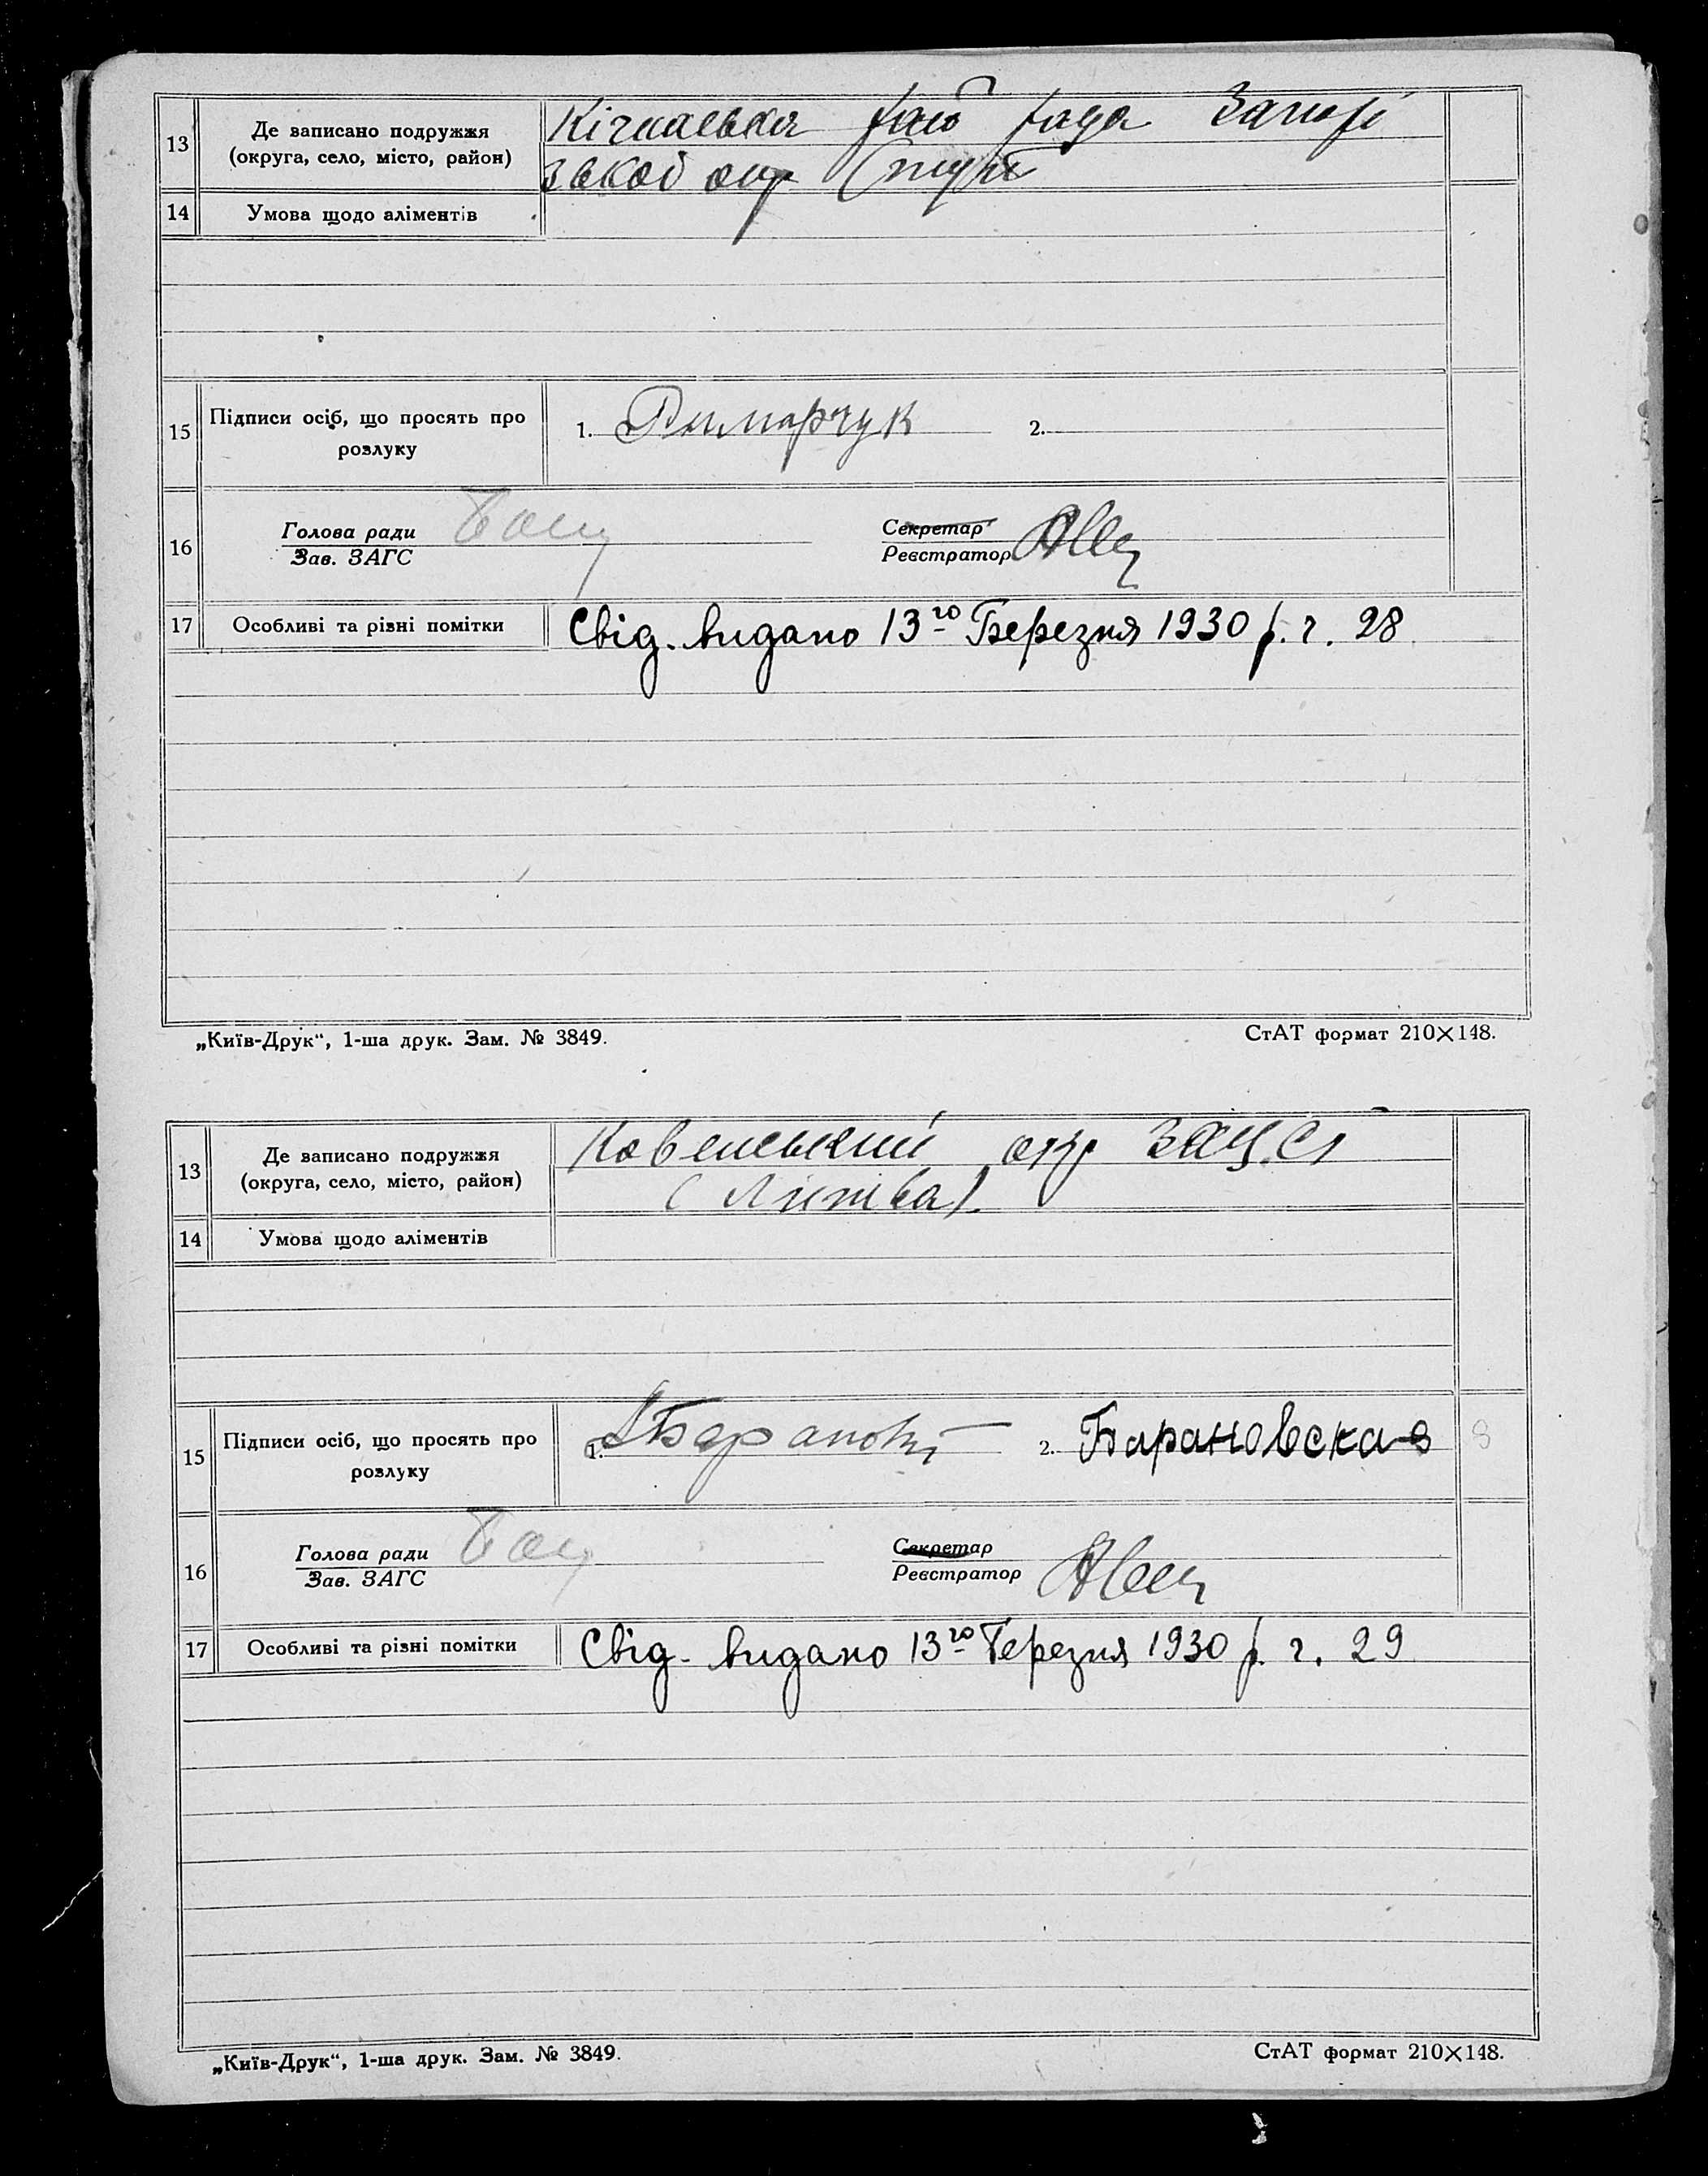 13 Де записано подружжя Кічкаська рай рада Запорі
(округа, село, місто, район) зької окр
14 Умова щодо аліментів
15 Підписи осіб, що просять про розлуку 1. Римарчук 2.
16 Голова ради Секретар
Зав. ЗАГС Реєстратор
17 Особливі та різні помітки Свід. видано 13го Березня 1930 р. ч. 28
„Київ-Друк“, 1-ша друк. Зам. № 3849. СтАТ формат 210×148.
13 Де записано подружжя Ковенський окр ЗАЦС
(округа, село, місто, район) (Литва).
14 Умова щодо аліментів
15 Підписи осіб, що просять про розлуку 1. 2. Барановская
16 Голова ради Секретар
Зав. ЗАГС Реєстратор
17 Особливі та різні помітки Свід. видано 13го Березня 1930 р. ч. 29
„Київ-Друк“, 1-ша друк. Зам. № 3849. СтАТ формат 210×148.